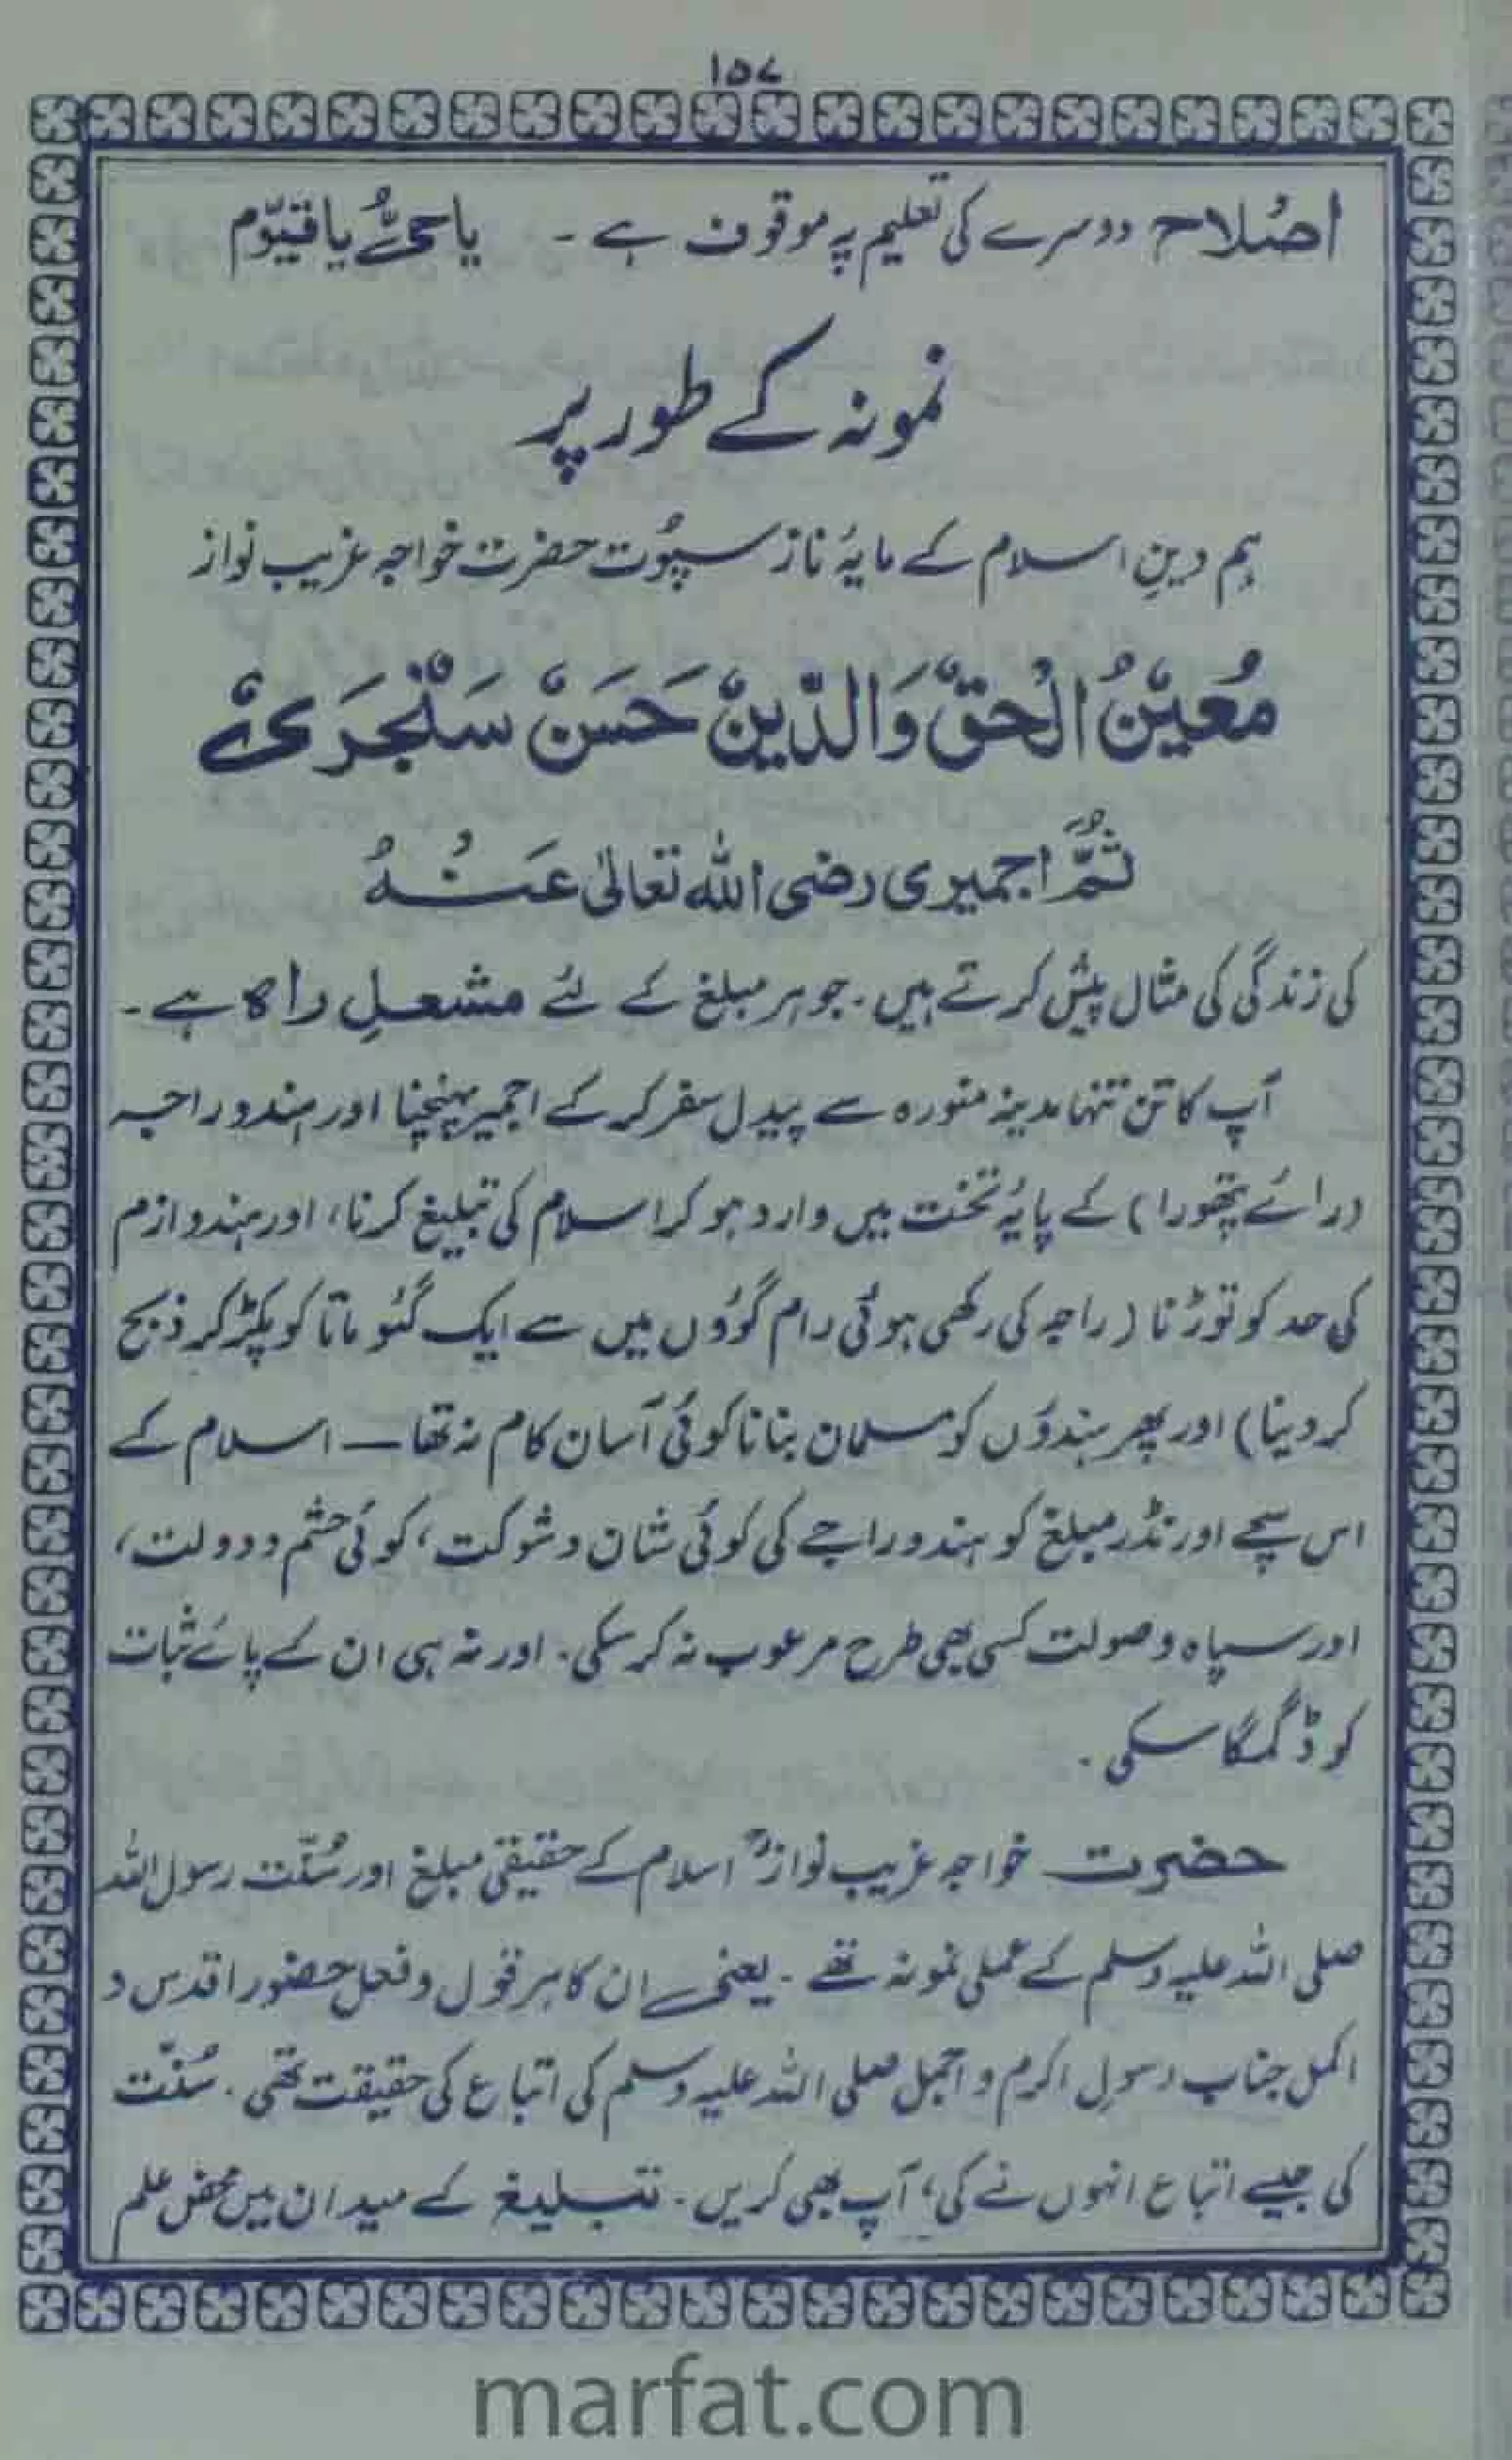 ۱۵۷
اصلاح دوسرے کی تعلیم پہ موقوف ہے ۔ یا حیُّ یا قیّوم
نمونہ کے طور پر
ہم دینِ اسلام کے مایۂ ناز سپُوت حضرت خواجہ غریب نواز
مُعِیْنُ الْحَقِّ وَالدِّیْنِ حَسَنْ سَنْجَرِیْ
ثُمَّ اجمیری رضی اللہ تعالیٰ عَنْہُ
کی زندگی کی مثال پیش کرتے ہیں ۔ جو ہر مبلغ کے لئے مشعلِ راہ ہے ۔
آپ کا تن تنہا مدینہ منورہ سے پیدل سفر کر کے اجمیر پہنچنا اور ہندو راجہ
(رائے پتھورا) کے پایۂ تخت میں وارد ہو کر اسلام کی تبلیغ کرنا، اور ہندو ازم
کی حد کو توڑنا (راجہ کی رکھی ہوئی رام گؤوں میں سے ایک گئو ماتا کو پکڑ کر ذبح
کر دینا) اور پھر ہندوؤں کو مسلمان بنانا کوئی آسان کام نہ تھا — اسلام کے
اس سچے اور نڈر مبلغ کو ہندو راجے کی کوئی شان و شوکت، کوئی حشم و دولت،
اور سپاہ و صولت کسی بھی طرح مرعوب نہ کر سکی ۔ اور نہ ہی ان کے پائے ثبات
کو ڈگمگا سکی ۔
حضرت خواجہ غریب نوازؒ اسلام کے حقیقی مبلغ اور سُنّت رسول اللہ
صلی اللہ علیہ وسلم کے عملی نمونہ تھے ۔ یعنی ان کا ہر قول و فعل حضور اقدس و
اکمل جناب رسولِ اکرم و اجمل صلی اللہ علیہ وسلم کی اتباع کی حقیقت تھی ۔ سُنّت
کی جیسے اتباع انہوں نے کی، آپ بھی کریں ۔ تبلیغ کے میدان میں محض علم
marfat.com